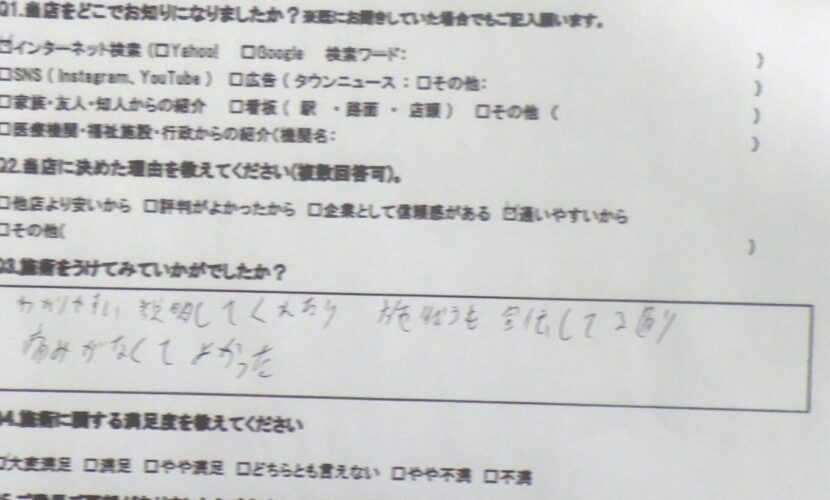 Q1.当店をどこでお知りになりましたか？既にお聞きしていた場合でもご記入願います。
☑インターネット検索（□Yahoo! □Google 検索ワード： ）
□SNS（Instagram、YouTube） □広告（タウンニュース：□その他： ）
□家族・友人・知人からの紹介 □看板（ 駅 ・路面 ・ 店頭 ） □その他（ ）
□医療機関・福祉施設・行政からの紹介（機関名： ）
Q2.当店に決めた理由を教えてください（複数回答可）。
□他店より安いから □評判がよかったから □企業として信頼感がある ☑通いやすいから
□その他（ ）
Q3.施術をうけてみていかがでしたか？
わかりやすい 説明してくれたり 施術も 宣伝してる通り
痛みがなくて よかった
Q4.施術に関する満足度を教えてください
☑大変満足 □満足 □やや満足 □どちらとも言えない □やや不満 □不満